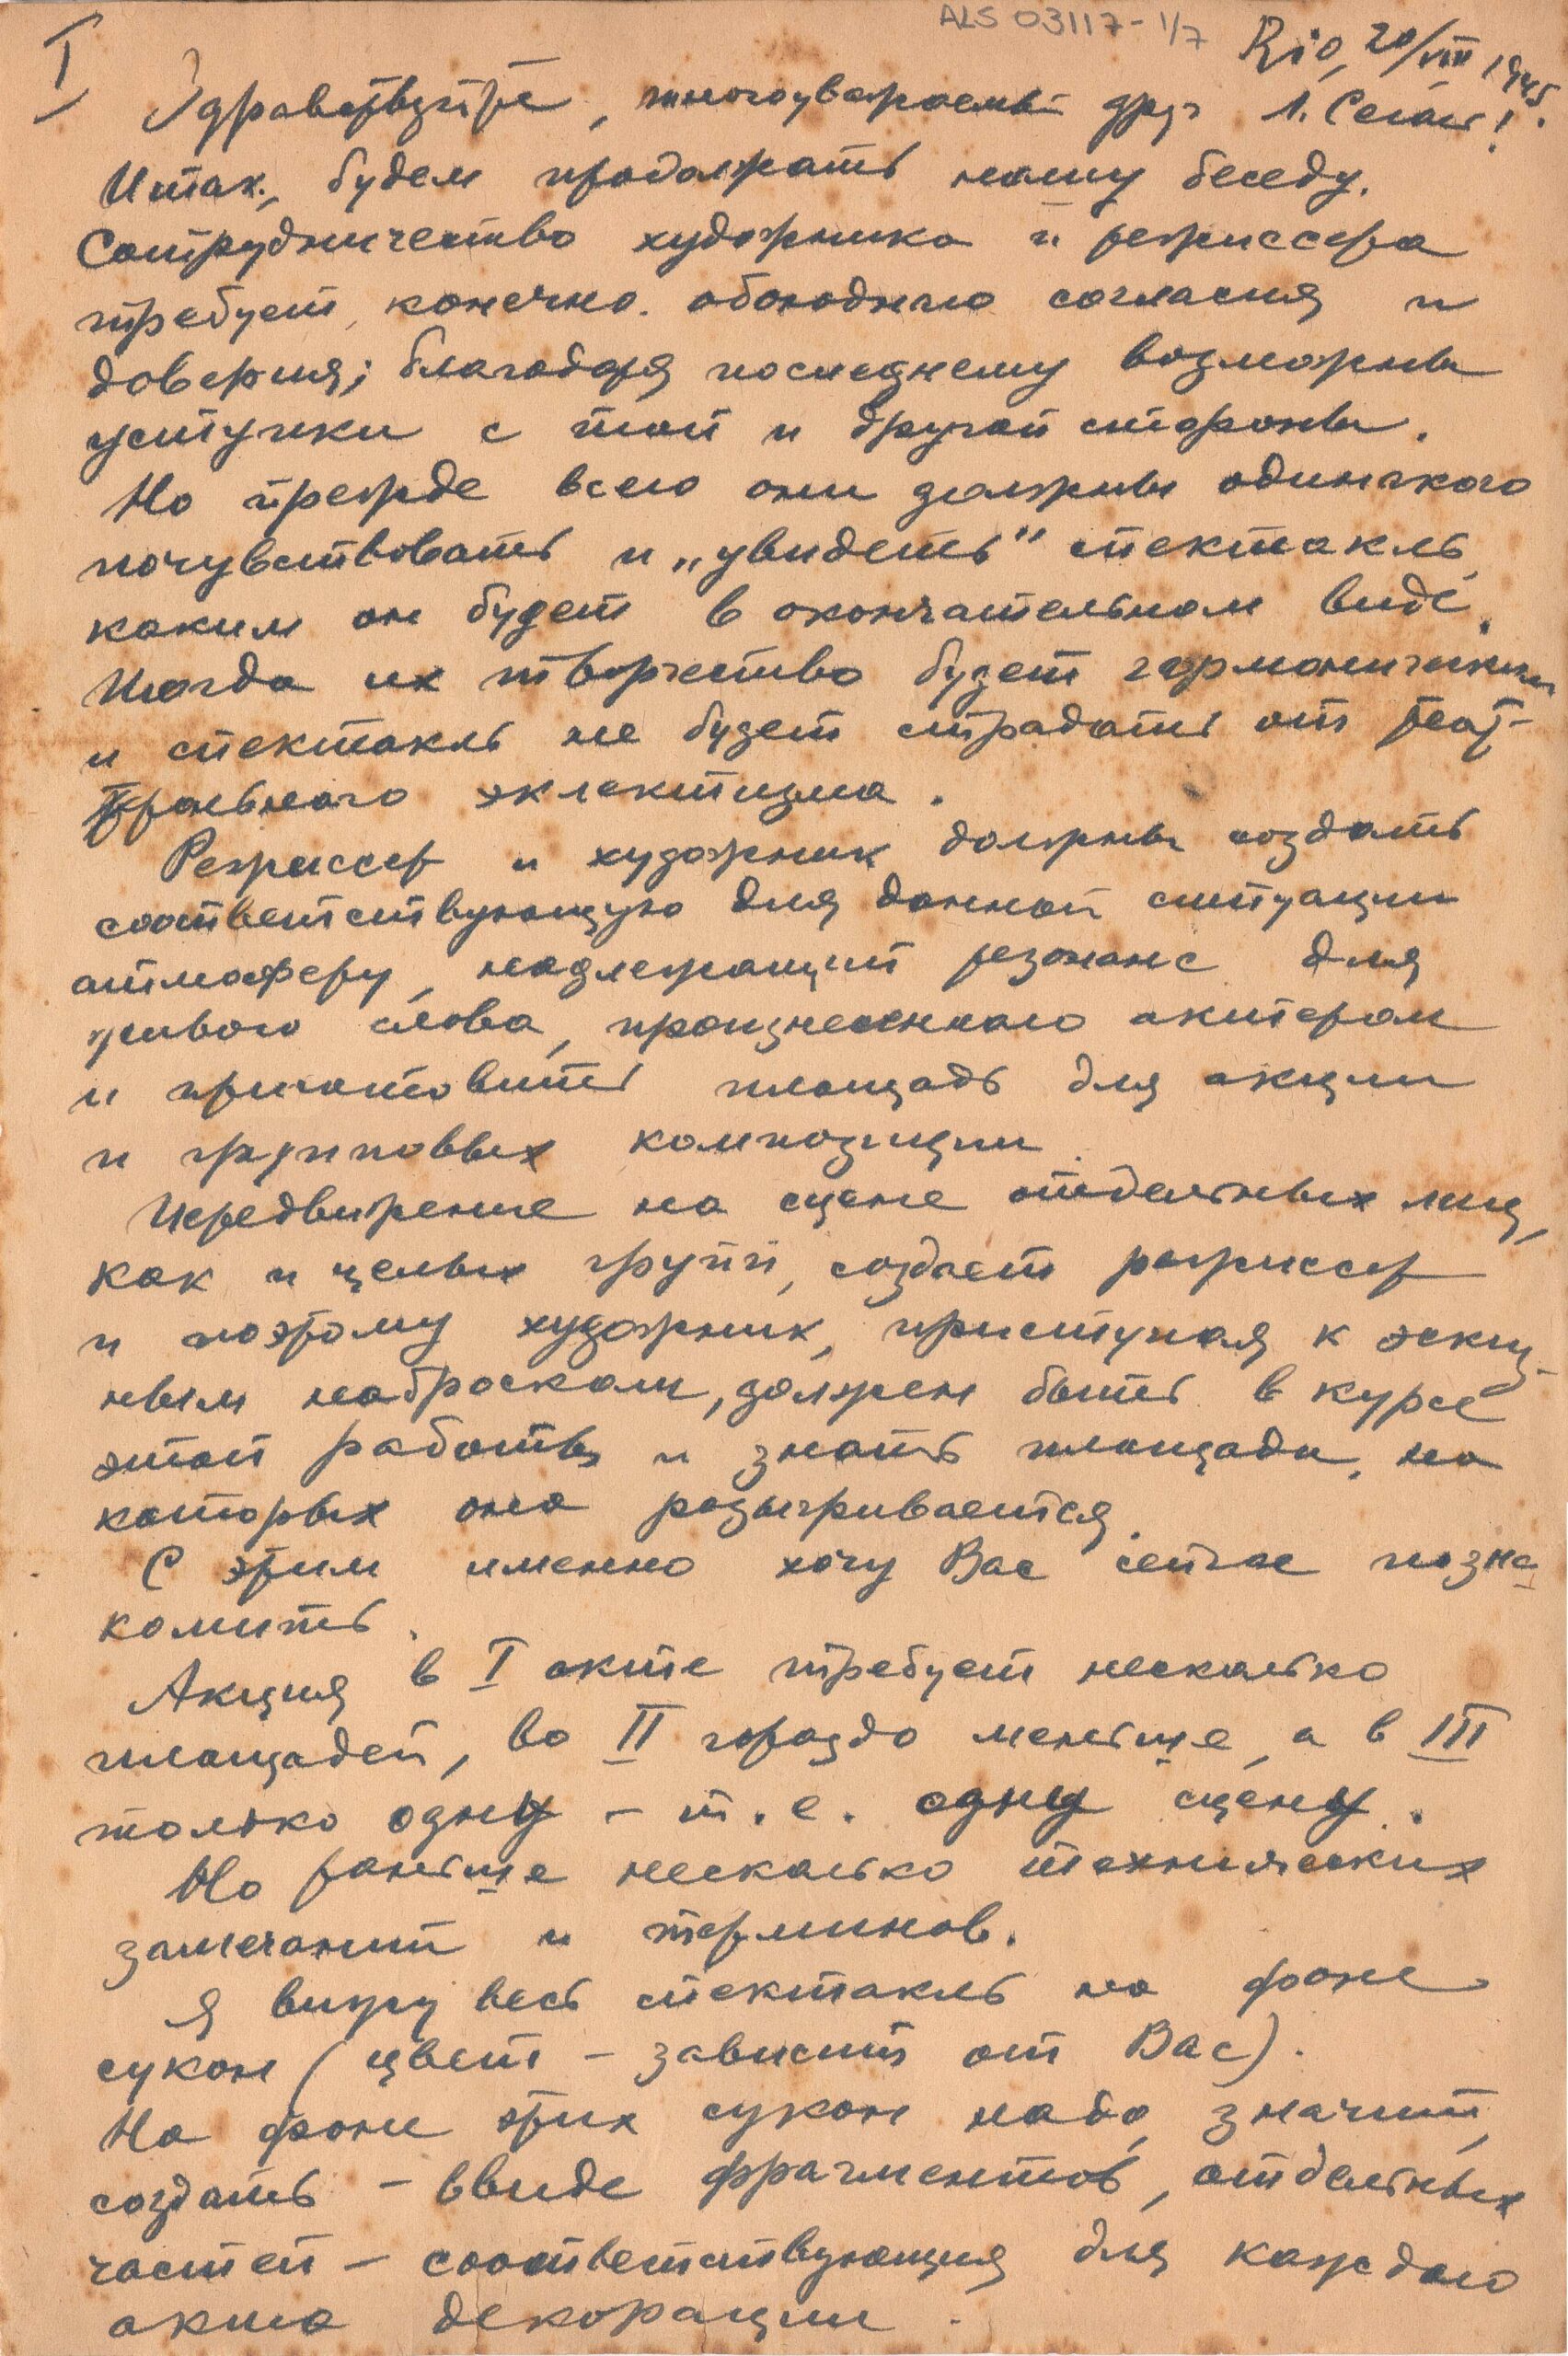 ALS 03117-1/7
I
Rio, 20/VIII 1945.
Здравствуйте, многоуважаемый друг Л. Сегал!
Итак, будем продолжать нашу беседу.
Сотрудничество художника и режиссера
требует, конечно, обоюдного согласия и
доверия; благодаря последнему возможны
уступки с той и другой стороны.
Но прежде всего они должны одинаково
почувствовать и „увидеть" спектакль,
каким он будет в окончательном виде.
Тогда их творчество будет гармоничным
и спектакль не будет страдать от теат-
рального эклектизма.
Режиссер и художник должны создать
соответствующую для данной ситуации
атмосферу, надлежащий резонанс для
живого слова, произнесенного актером
и приготовить площадь для акции
и групповых композиции.
Передвижение на сцене отдельных лиц,
как и целых групп, создает режиссер
и поэтому художник, приступая к эскиз-
ным наброскам, должен быть в курсе
этой работы и знать площади, на
которых она разыгривается.
С этим именно хочу Вас сейчас позна-
комить.
Акция в I акте требует несколько
площадей, во II гораздо меньше, а в III
только одну – т. е. одну сцену.
Но раньше несколько технических
замечаний и терминов.
Я вижу весь спектакль на фоне
сукон (цвет – зависит от Вас).
На фоне этих сукон надо, значит,
создать – ввиде фрагментов, отдельных
частей – соответствующия для каждого
акта декорации.